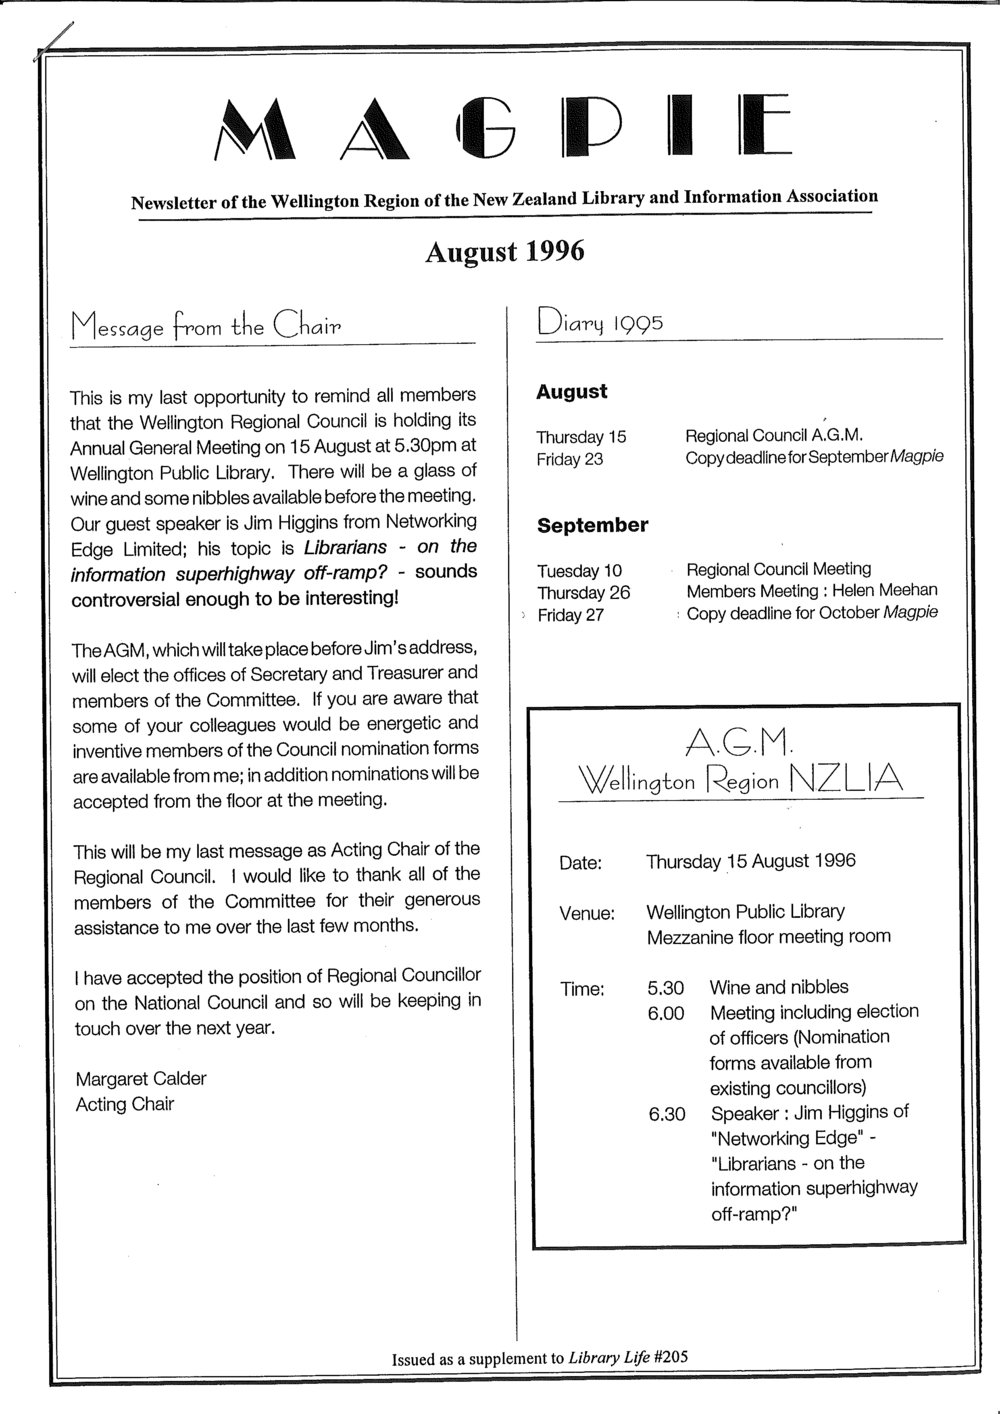 MAGPIE
Newsletter of the Wellington Region of the New Zealand Library and Information Association
August 1996
Message from the Chair
This is my last opportunity to remind all members
that the Wellington Regional Council is holding its
Annual General Meeting on 15 August at 5.30pm at
Wellington Public Library. There will be a glass of
wine and some nibbles available before the meeting.
Our guest speaker is Jim Higgins from Networking
Edge Limited; his topic is Librarians - on the
information superhighway off-ramp? - sounds
controversial enough to be interesting!
The AGM, which will take place before Jim's address,
will elect the offices of Secretary and Treasurer and
members of the Committee. If you are aware that
some of your colleagues would be energetic and
inventive members of the Council nomination forms
are available from me; in addition nominations will be
accepted from the floor at the meeting.
This will be my last message as Acting Chair of the
Regional Council. I would like to thank all of the
members of the Committee for their generous
assistance to me over the last few months.
I have accepted the position of Regional Councillor
on the National Council and so will be keeping in
touch over the next year.
Margaret Calder
Acting Chair
Diary 1995
August
Thursday 15 Regional Council A.G.M.
Friday 23 Copy deadline for September Magpie
September
Tuesday 10 Regional Council Meeting
Thursday 26 Members Meeting : Helen Meehan
Friday 27 Copy deadline for October Magpie
A.G.M.
Wellington Region NZLIA
Date: Thursday 15 August 1996
Venue: Wellington Public Library
Mezzanine floor meeting room
Time: 5.30 Wine and nibbles
6.00 Meeting including election
of officers (Nomination
forms available from
existing councillors)
6.30 Speaker : Jim Higgins of
"Networking Edge" -
"Librarians - on the
information superhighway
off-ramp?"
Issued as a supplement to Library Life #205